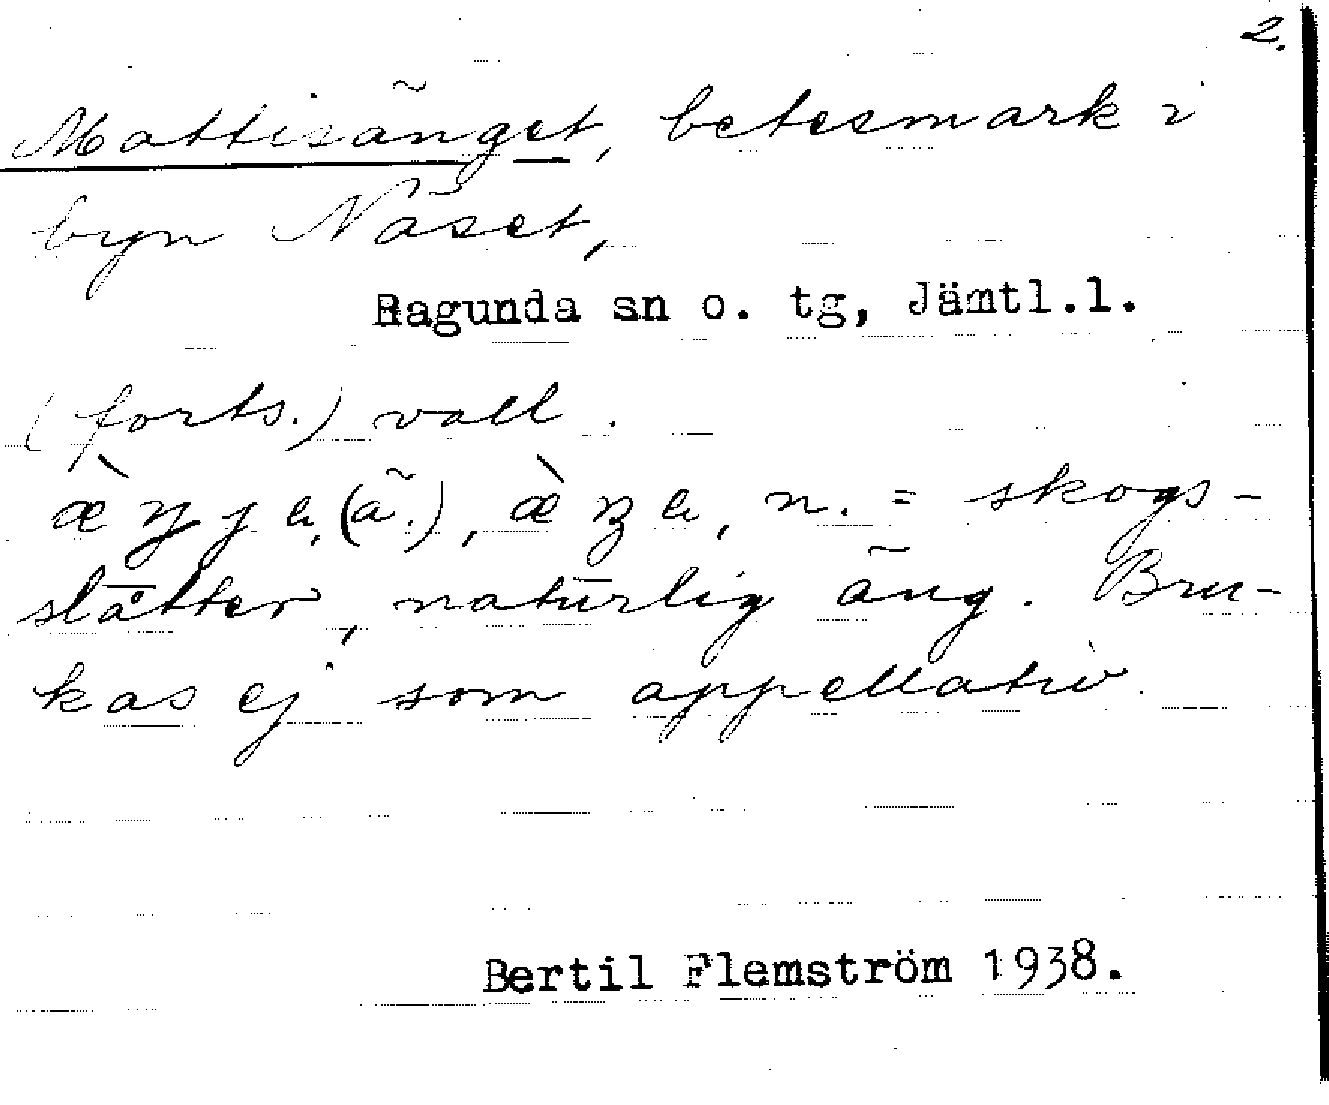 2.
Mattisänget, betesmark i
byn Näset,
Ragunda sn o. tg, Jämtl.l.
(forts.) vall.
(ä.), n. = skogs-
slåtter, naturlig äng. Bru-
kas ej som appellativ.
Bertil Flemström 1938.